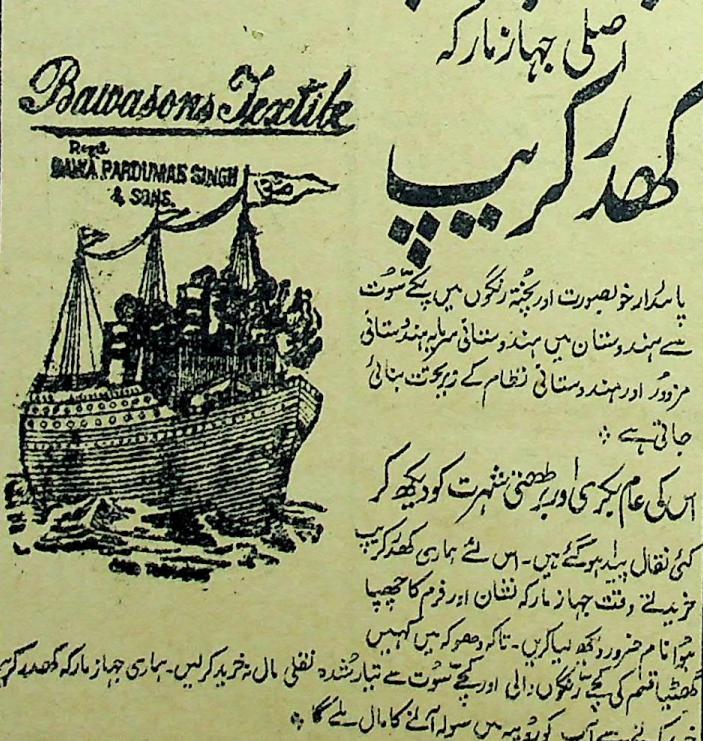 اصلی جہاز مارکہ
کھدر کریپ
Bawasons Textile
Regd.
BAWA PARDUMAN SINGH
& SONS.
پائدار خوبصورت اور پختہ رنگوں میں پکے سُوت
سے ہندوستان میں ہندوستانی سرمایہ ہندوستانی
مزدور اور ہندوستانی نظام کے زیر تحت بنائی
جاتی ہے
اس کی عام بکری اور بڑھتی شہرت کو دیکھ کر
کئی نقال پیدا ہو گئے ہیں۔ اس لئے ہماری کھدر کریپ
خریدتے وقت جہاز مارکہ نشان اور فرم کا چھپا
ہوا نام ضرور دیکھ لیا کریں۔ تاکہ دھوکہ میں کہیں
گھٹیا قسم کی کچے رنگوں والی اور کچے سُوت سے تیار شدہ نقلی مال نہ خرید کر لیں۔ ہماری جہاز مارکہ کھدر کریپ
سے آپ کو روپیہ میں سولہ آنے کا مال ملے گا